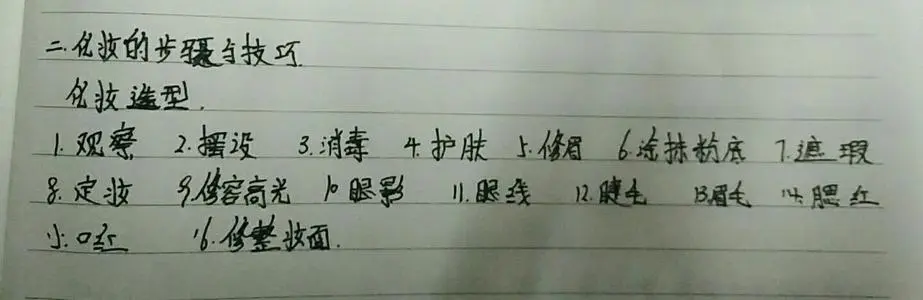 二.化妆的步骤与技巧.
化妆造型.
1.观察 2.摆设 3.消毒 4.护肤 5.修眉 6.涂抹粉底 7.遮瑕
8.定妆 9.修容高光 10眼影 11.眼线 12.睫毛 13.眉毛 14.腮红
15.口红 16.修整妆面.